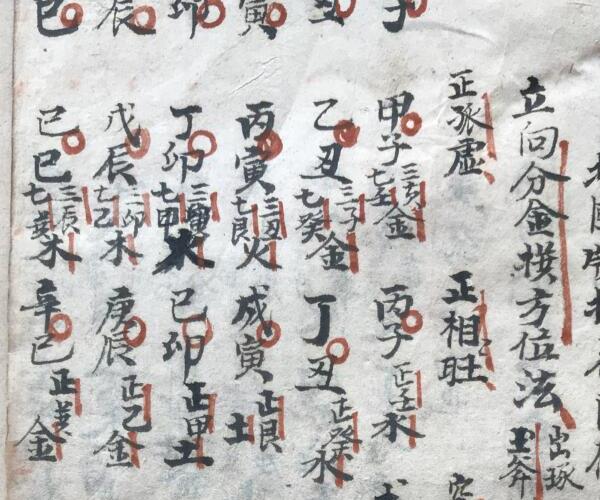 立向分金撰方位法
正孤虛
正相旺
甲子 三亥 七壬 金
丙子 正壬 水
乙丑 三子 七癸 金
丁丑 正癸 水
丙寅 三丑 七艮 火
戊寅 正艮 土
丁卯 三寅 七甲 火
己卯 正甲 土
戊辰 三卯 七乙 木
庚辰 正乙 金
己巳 三辰 七巽 木
辛巳 正巽 金
子
丑
寅
卯
辰
巳